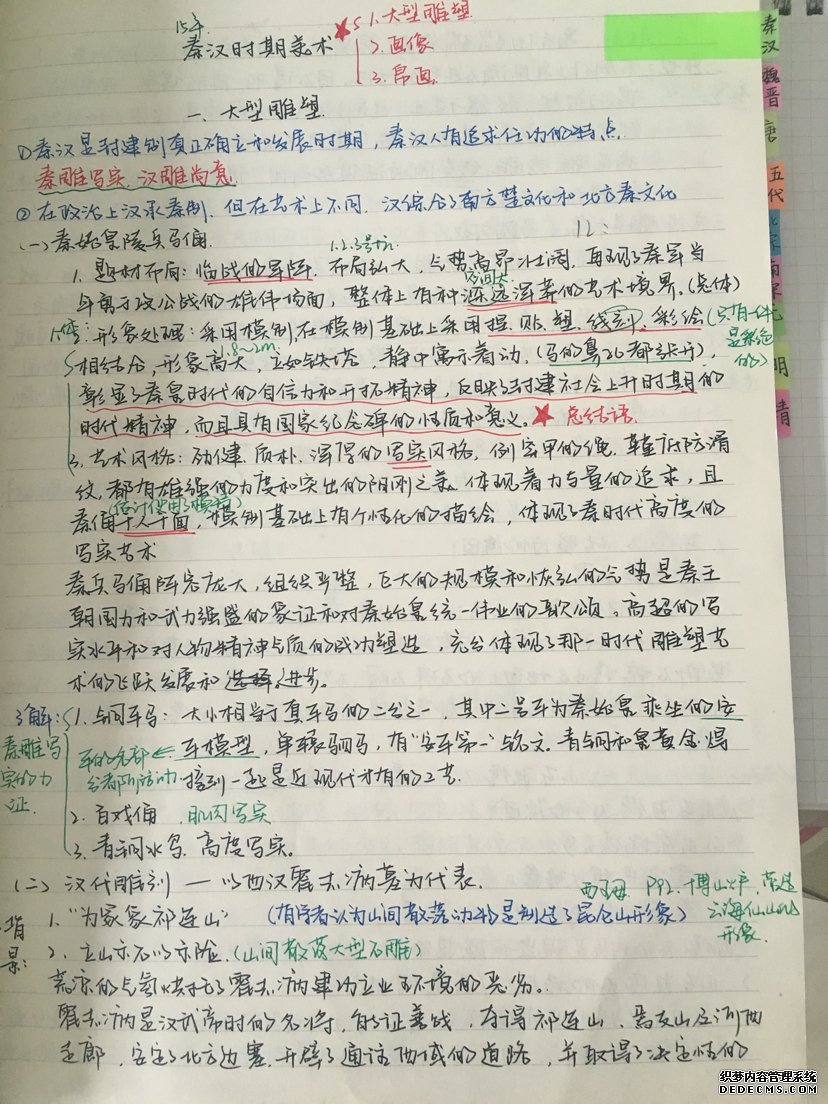 15年
秦汉时期美术 ★ 1.大型雕塑
2.画像
3.帛画
秦汉
魏晋
唐
五代
北宋
南宋
元
明
清
一、大型雕塑
①秦汉是封建制真正确立和发展时期，秦汉人有追求任功的特点.
秦雕写实，汉雕尚意
②在政治上汉承秦制，但在艺术上不同，汉综合了南方楚文化和北方秦文化
(一)秦始皇陵兵马俑. 1.2.3号坑 12:
1. 题材布局：临战的军阵. 布局弘大，气势高昂壮阔，再现了秦军当
年勇于攻公战的雄伟场面，整体上有种深远浑莽的艺术境界。(总体)
空间大
2.形象处理：采用模制，在模制基础上采用捏、贴、塑、线刻、彩绘(只有一件
是彩绘的)
相结合，形象高大，立如铁塔，静中寓示着动，(马的鼻孔都张开)，
1.8~2m
彰显了秦皇时代的自信力和开拓精神，反映了封建社会上升时期的
时代精神，而且具有国家纪念碑的性质和意义。★ 总结语
3. 艺术风格：劲健、质朴、浑厚的写实风格，例穿甲的绳，鞋底防滑
纹，都有雄强的力度和突出的阳刚之美，体现着力与量的追求，且
秦俑千人千面，模制基础上有个性化的描绘，体现了秦时代高度的
写实艺术
秦兵马俑阵容庞大，组织严整，巨大的规模和恢弘的气势是秦王
朝国力和武力强盛的象证和对秦始皇统一伟业的歌颂。高超的写
实水平和对人物精神气质的成功塑造，充分体现了那一时代雕塑艺
术的飞跃发展和进步。
了解：1.铜车马：大小相当于真车马的二分之一，其中二号车为秦始皇乘坐的安
秦雕写实的力证.
车模型，单辕驷马，有"安车第一"铭文。青铜和皇黄金焊
接到一起是近现代才有的工艺.
2. 百戏俑 肌肉写实
3. 青铜水鸟 高度写实。
(二) 汉代雕刻 — 以西汉霍去病墓为代表.
西王母 P92. 博山炉，营造
云海仙山的
形象.
背景：
1."为冢象祁连山" (有学者认为山间散落动物是制造了昆仑山形象)
2. 立山亦石以亦险，(山间散落大型石雕)
荒凉的气氛烘托了霍去病建功立业于环境的恶劣。
霍去病是汉武帝时的名将，能征善战，夺得祁连山、焉支山及河西
走廊，安定了北方边塞，开辟了通往西域的道路，并取得了决定性的
织梦内容管理系统
DEDECMS.COM